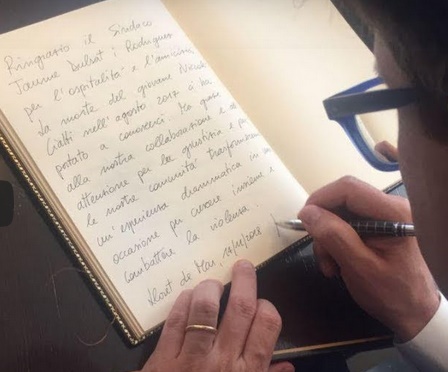 Ringrazio il Sindaco
Jaume Dulsat i Rodríguez
per l'ospitalità e l'amicizia.
La morte del giovane Niccolò
Ciatti nell'agosto 2017 ci ha
portato a conoscerci. Ma grazie
alla nostra collaborazione e
attenzione per la giustizia e per
le nostre comunità trasformiamo
un'esperienza drammatica in
occasione per crescere insieme e
combattere la violenza.
Lloret de Mar,